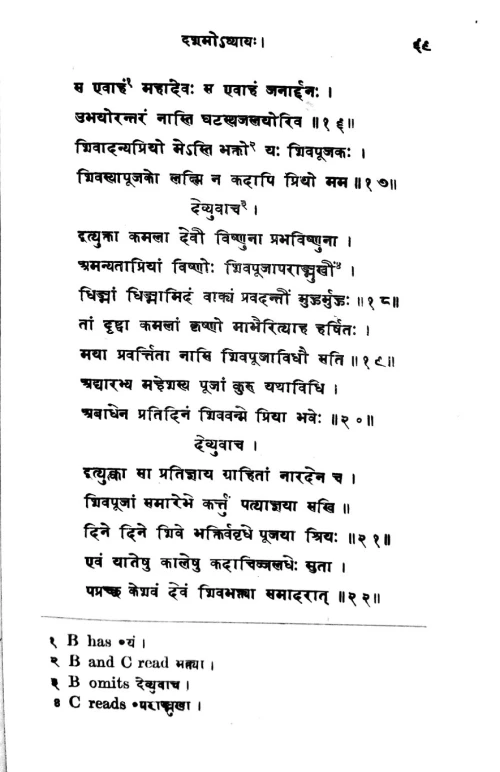 दशमोऽध्यायः। ६९
स एवाहं१ महादेवः स एवाहं जनार्द्दनः ।
उभयोरन्तरं नास्ति घटस्थजलयोरिव ॥१६॥
शिवादन्यप्रियो मेऽस्ति भक्तो२ यः शिवपूजकः ।
शिवस्यापूजको लक्ष्मि न कदापि प्रियो मम ॥१७॥
देव्युवाच३ ।
इत्युक्ता कमला देवी विष्णुना प्रभविष्णुना ।
अमन्यताप्रियां विष्णोः शिवपूजापराङ्मुखीं४ ।
धिङ्मां धिङ्मामिदं वाक्यं प्रवदन्तीं मुहुर्मुहुः ॥१८॥
तां दृष्ट्वा कमलां कृष्णो माभैरित्याह हर्षितः ।
मया प्रवर्त्तिता नासि शिवपूजाविधौ सति ॥१९॥
अद्यारभ्य महेशस्य पूजां कुरु यथाविधि ।
अबाधेन प्रतिदिनं शिववन्मे प्रिया भवेः ॥२०॥
देव्युवाच ।
इत्युक्त्वा सा प्रतिज्ञाय ग्राहितां नारदेन च ।
शिवपूजां समारेभे कर्त्तुं पत्याज्ञया सखि ॥
दिने दिने शिवे भक्तिर्ववृधे पूजया श्रियः ॥२१॥
एवं यातेषु कालेषु कदाचिज्जलधेः सुता ।
पप्रच्छ केशवं देवं शिवभक्त्या समादरात् ॥२२॥
१ B has ॰यं ।
२ B and C read भक्त्या ।
३ B omits देव्युवाच ।
४ C reads ॰पराङ्मुखा ।